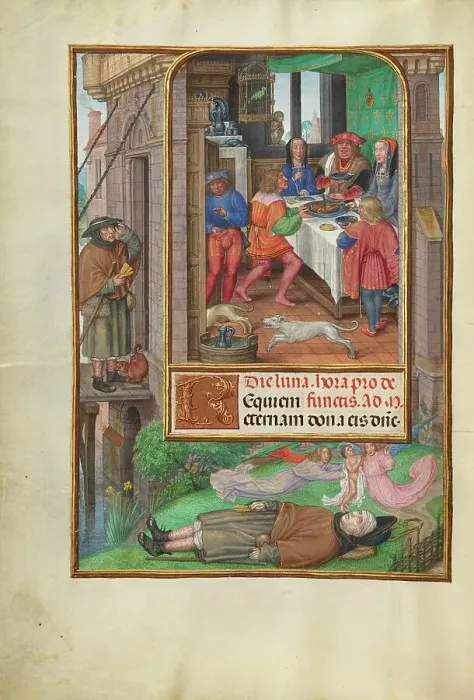 Die lune. hora pro de
Requiem functis. Ad M.
eternam dona eis dñe.